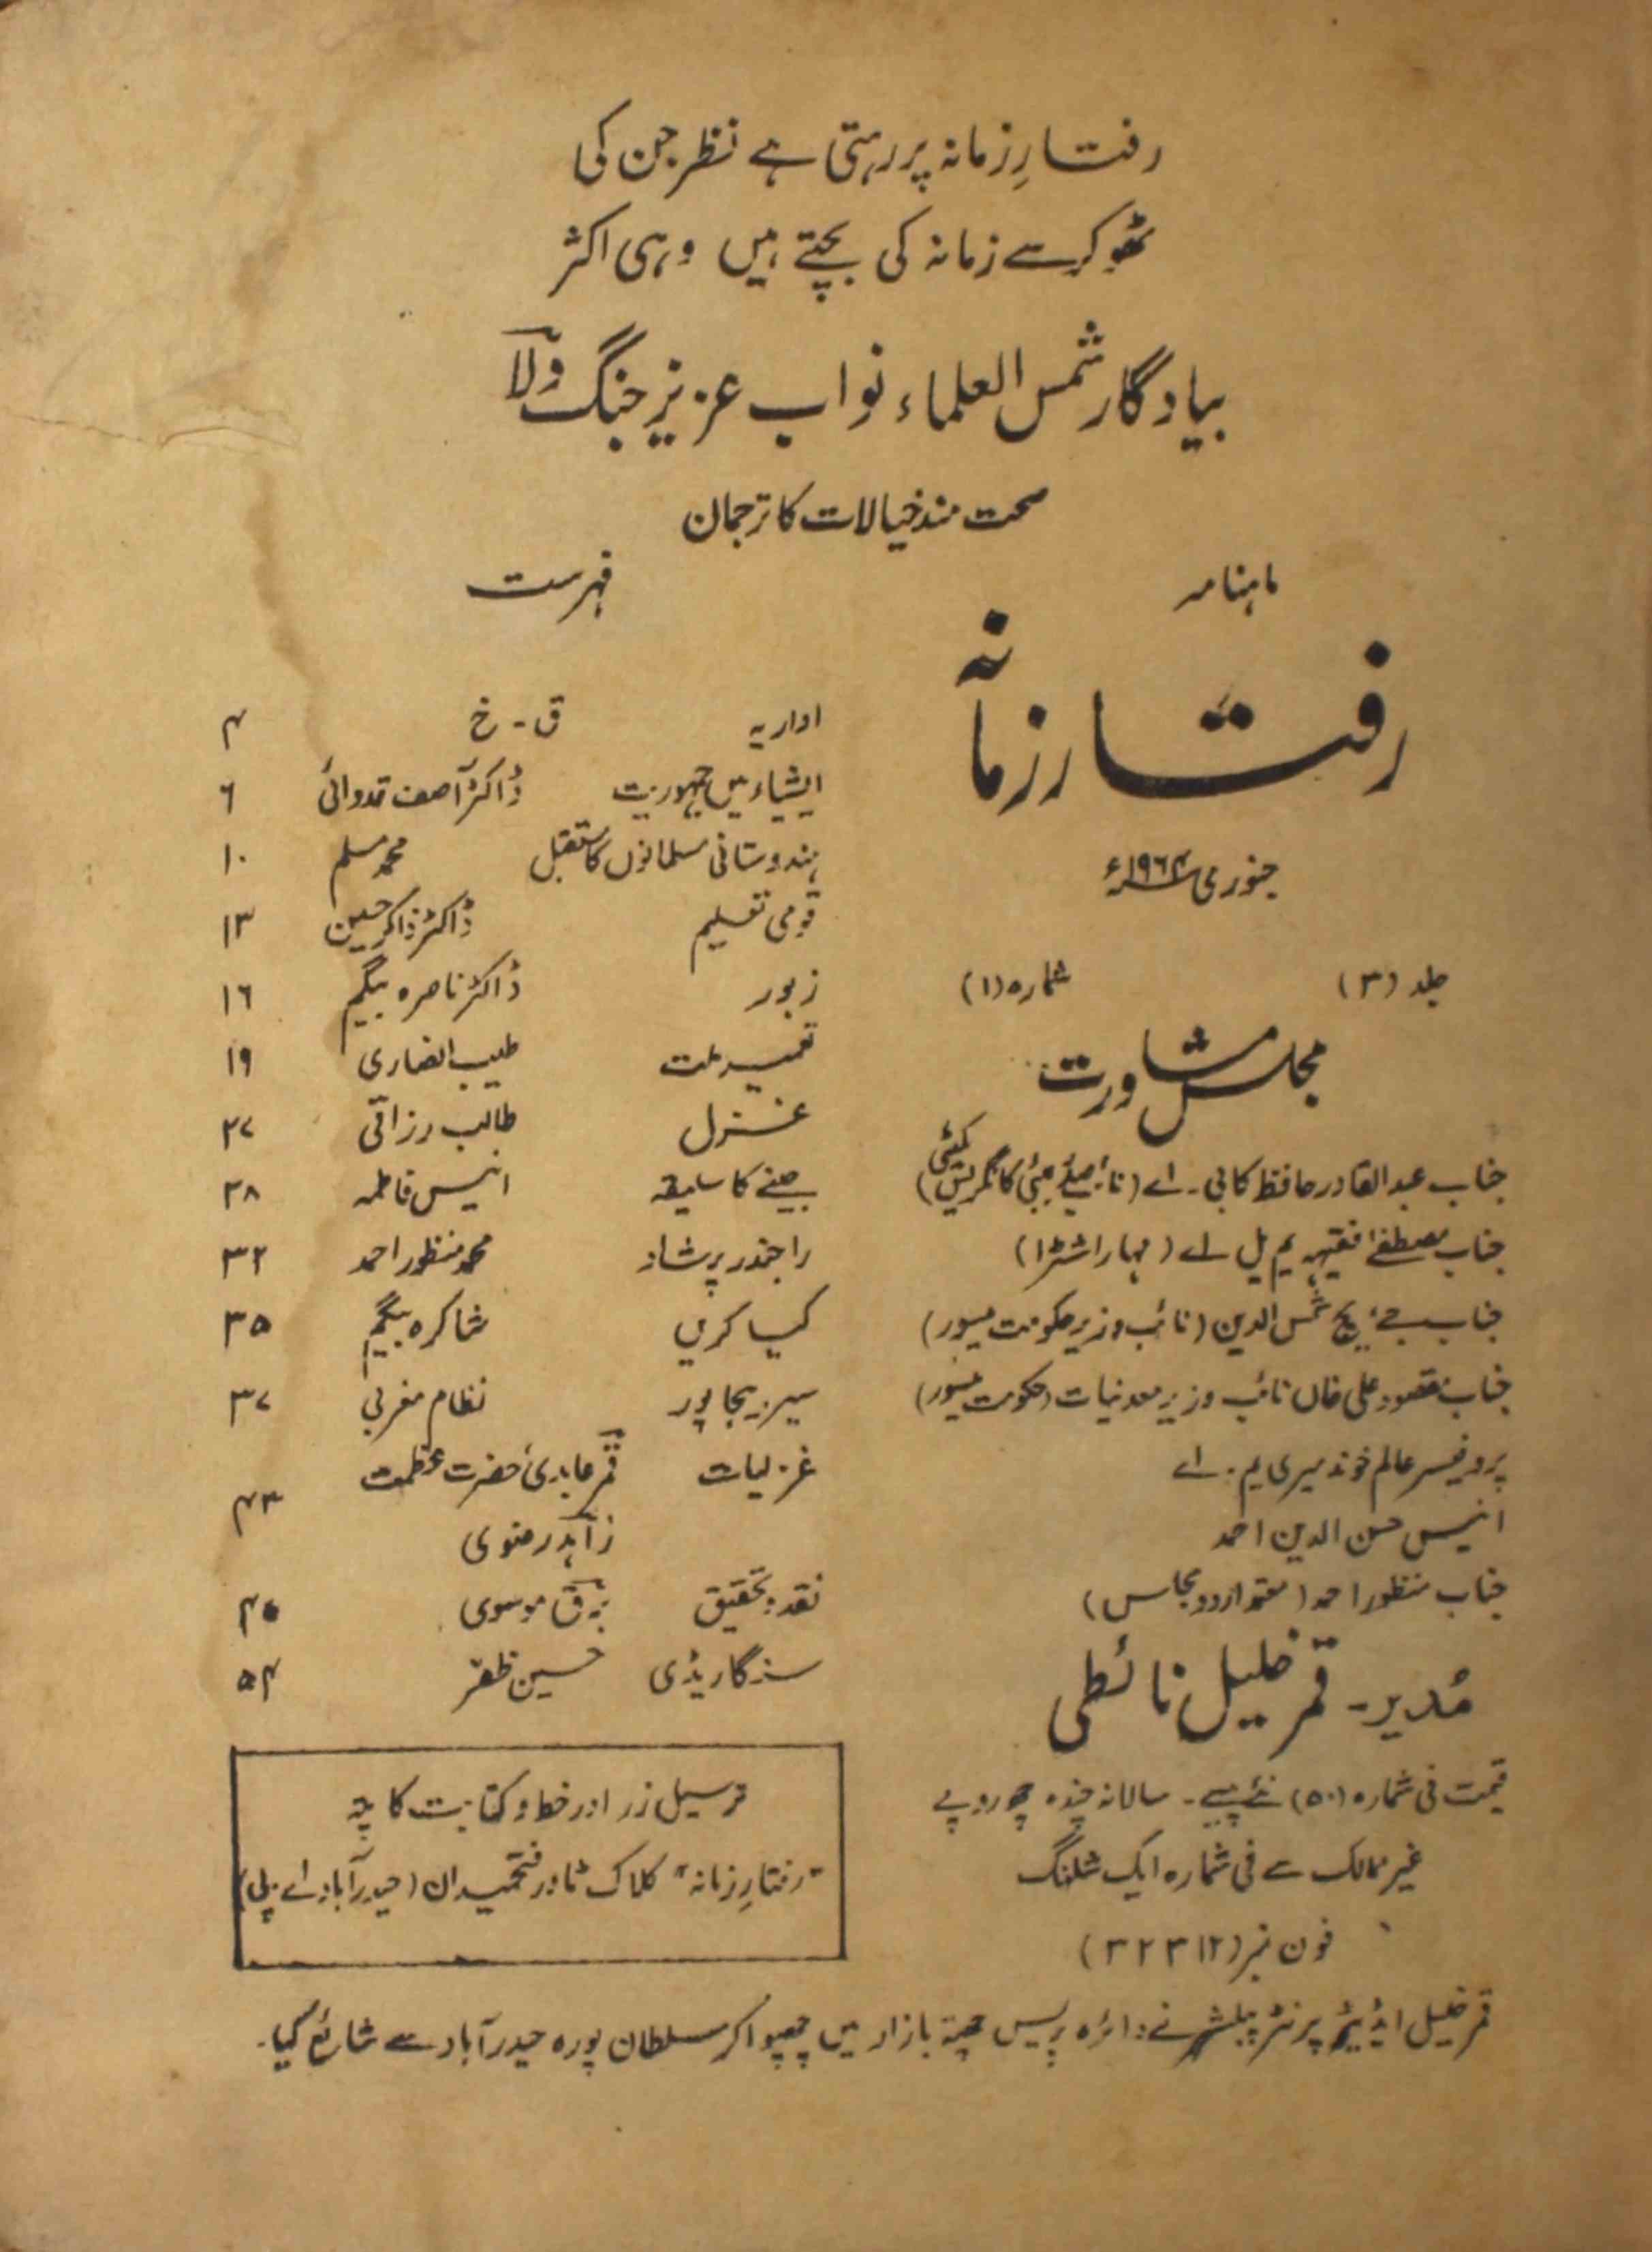 رفتارِ زمانہ پر رہتی ہے نظر جن کی
ٹھوکر سے زمانہ کی بچتے ہیں وہی اکثر
بیادگار شمس العلماء نواب عزیز جنگ ولاؔ
صحت مند خیالات کا ترجمان
ماہنامہ
رفتار زمانہ
جنوری ۱۹۶۴ء
جلد (۳) شمارہ (۱)
مجلس مشاورت
جناب عبدالقادر حافظ کا بی۔ اے (نائب صدر بمبئی کانگریس کمیٹی)
جناب مصطفےٰ فقیہہ یم یل اے (مہاراشٹرا)
جناب جے یچ شمس الدین (نائب وزیر حکومت میسور)
جناب مقصود علی خاں نائب وزیر معدنیات (حکومت میسور)
پروفیسر عالم خوند میری یم۔ اے
انیس حسن الدین احمد
جناب منظور احمد (معتمد اردو مجالس)
مُدیر۔ قمر خلیل نائطی
قیمت فی شمارہ (۵۰) نئے پیسے۔ سالانہ چندہ چھ روپے
غیر ممالک سے فی شمارہ ایک شلنگ
فون نمبر (۳۲۳۱۲)
فہرست
اداریہ ق۔ خ ۴
ایشیاء میں جمہوریت ڈاکٹر آصف قدوائی ۶
ہندوستانی مسلمانوں کا مستقبل محمد مسلم ۱۰
قومی تعلیم ڈاکٹر ذاکر حسین ۱۳
زیور ڈاکٹر ناصرہ بیگم ۱۶
تعمیر ملت طیب انصاری ۱۹
غزل طالب رزاقی ۲۷
جینے کا سلیقہ انیس فاطمہ ۲۸
راجندر پرشاد محمد منظور احمد ۳۲
کیا کریں شاکرہ بیگم ۳۵
سیر بیجاپور نظام مغربی ۳۷
غزلیات قمر عابدی، حضرت عظمت
زاہد رضوی ۴۳
نقد و تحقیق برق موسوی ۴۵
سنگاریڈی حسین ظفر ۵۴
ترسیل زر اور خط و کتابت کا پتہ
"رفتارِ زمانہ" کلاک ٹاور فتحمیدان (حیدرآباد اے پی)
قمر خلیل ایڈیٹر پرنٹر پبلشر نے دائرہ پریس چھتہ بازار میں چھپوا کر سلطان پورہ حیدرآباد سے شائع کیا۔